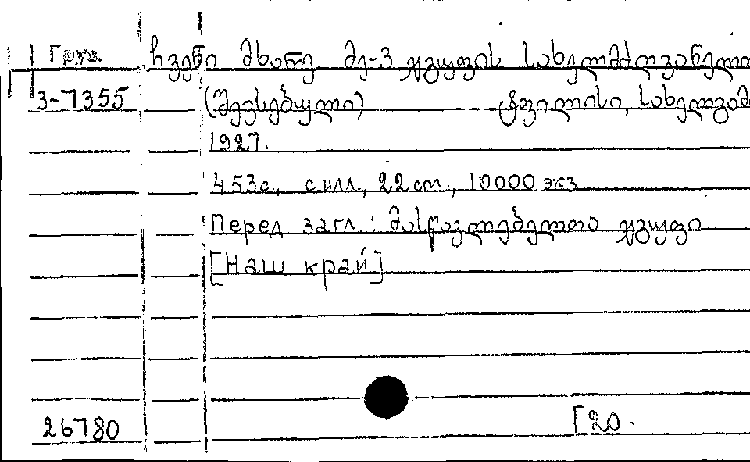 Груз. ჩვენი მხარე მე-3 ჯგუფის სახელმძღვანელო
3-7355 (შევსებული) ტფილისი, სახელგამ
1927.
453с, с илл, 22 cm, 10000 экз
Перед загл.: მასწავლებელთა ჯგუფი
[Наш край]
26780 [20.